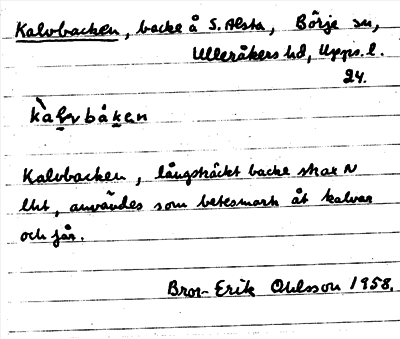 Kalvbacken, backe å S. Alsta, Börje sn,
Ulleråkers hd, Upps. l.
24.
kalvbåken
Kalvbacken, långsträckt backe strax N
Unt, användes som betesmark åt kalvar
och får.
Bror-Erik Ohlsson 1958.